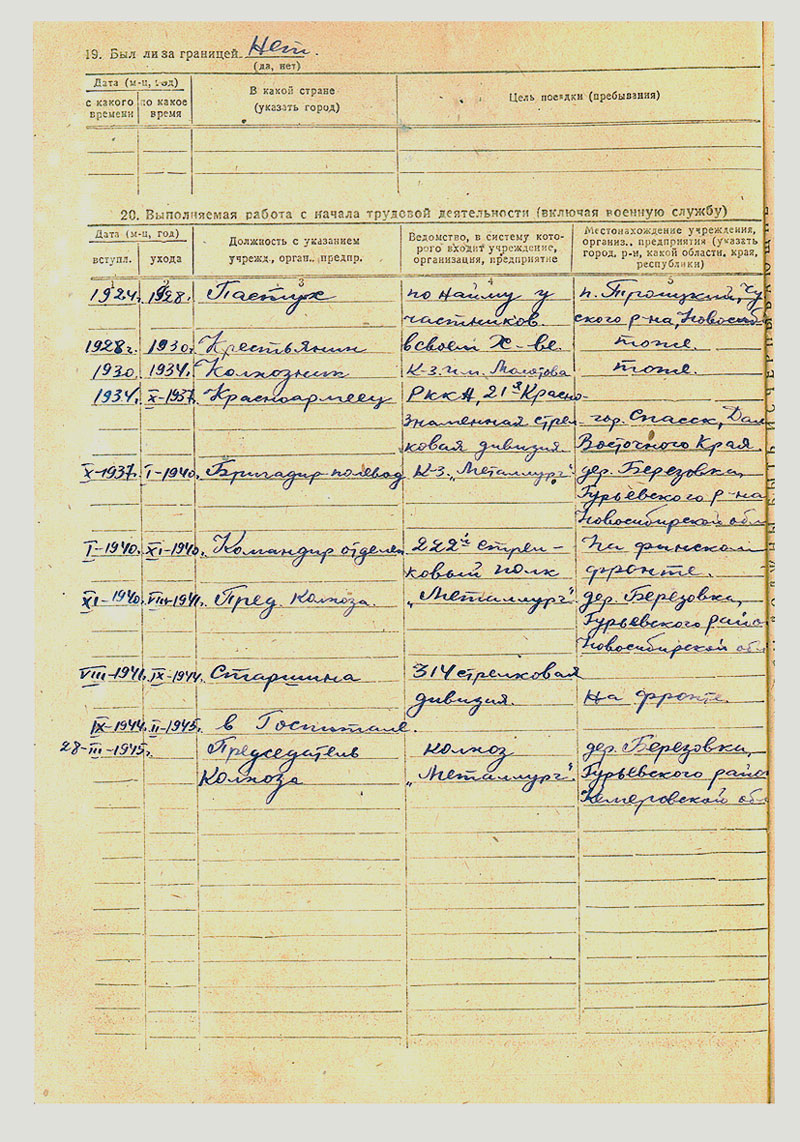 19. Был ли за границей Нет.
(да, нет)
Дата (м-ц, год)
с какого времени
по какое время
В какой стране
(указать город)
Цель поездки (пребывания)
20. Выполняемая работа с начала трудовой деятельности (включая военную службу)
Дата (м-ц, год)
вступл. ухода
Должность с указанием
учрежд., орган., предпр.
Ведомство, в систему кото-
рого входит учреждение,
организация, предприятие
Местонахождение учреждения,
организ., предприятия (указать
город, р-н, какой области, края,
республики)
3 4 5
1924. 1928. Пастух по найму у п. Троицкий,
частников. ского р-на, Новосиб
1928г. 1930. Крестьянин в своем х-ве. тоже.
1930. 1934. Колхозник К-з. им. Молотова тоже.
1934. X-1937. Красноармеец РККА 21й Красно-
знаменная стрел- гор. Спасск, Даль
ковая дивизия. Восточного Края.
X-1937. I-1940. Бригадир полевод К-З. „Металлург". дер. Березовка,
Гурьевского р-на
Новосибирской обл
I-1940. XI-1940. Командир отделен 222й стрел- На финском
ковый полк фронте.
XI-1940. VIII-1941. Пред. Колхоза. „Металлург". дер. Березовка,
Гурьевского райо
Новосибирской обл
VIII-1941. IX-1944. Старшина 314 стрелковая
дивизия. На фронте.
IX-1944. II-1945. в Госпитале.
28-III-1945. Председатель колхоз дер. Березовка,
Колхоза „Металлург". Гурьевского райо
Кемеровской обл